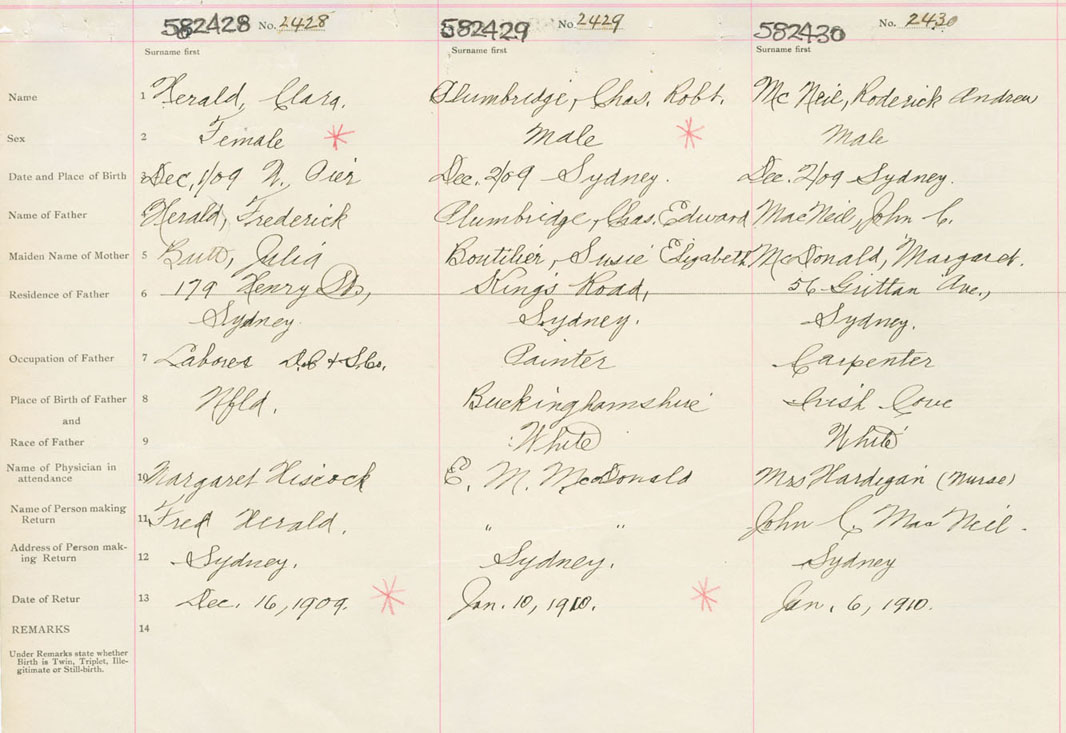 582428 No. 2428 582429 No. 2429 582430 No. 2430
Surname first Surname first Surname first
Name 1 Herald, Clara. Plumbridge, Chas. Robt. McNeil, Roderick Andrew
Sex 2 Female Male Male
Date and Place of Birth 3 Dec, 1/09 N. Pier Dec. 2/09 Sydney. Dec. 2/09 Sydney.
Name of Father Herald, Frederick Plumbridge, Chas. Edward MacNeil, John C.
Maiden Name of Mother 5 Butt, Julia Boutilier, Susie Elizabeth McDonald, Margaret.
Residence of Father 6 179 Henry St., Kings Road, 56 Ave.,
Sydney Sydney. Sydney.
Occupation of Father 7 Laborer D.C & S.Co. Painter Carpenter
Place of Birth of Father 8 Nfld. Buckinghamshire Irish Cove
and
Race of Father 9 White White
Name of Physician in
attendance 10 Margaret Hiscock E. M. McDonald Mrs Hardigan (Nurse)
Name of Person making
Return 11 Fred Herald. " " John C. MacNeil.
Address of Person mak-
ing Return 12 Sydney. Sydney. Sydney
Date of Retur 13 Dec. 16, 1909. Jan. 10, 1910. Jan. 6, 1910.
REMARKS 14
Under Remarks state whether
Birth is Twin, Triplet, Ille-
gitimate or Still-birth.